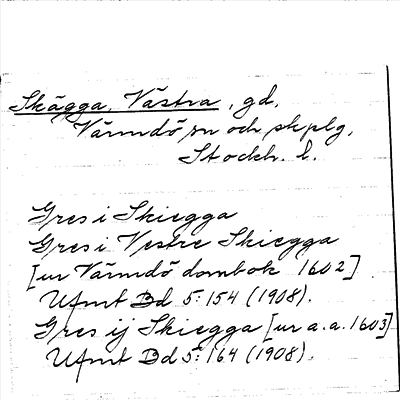 Skägga, Västra, gd,
Värmdö sn och skplg,
Stockh. l.
Gres i Skiegga
Gres i Vestre Skiegga
[ur Värmdö dombok 1602]
Ufmt Bd 5:154 (1908).
Gres ij Skiegga [ur a.a. 1603]
Ufmt Bd 5:164 (1908).